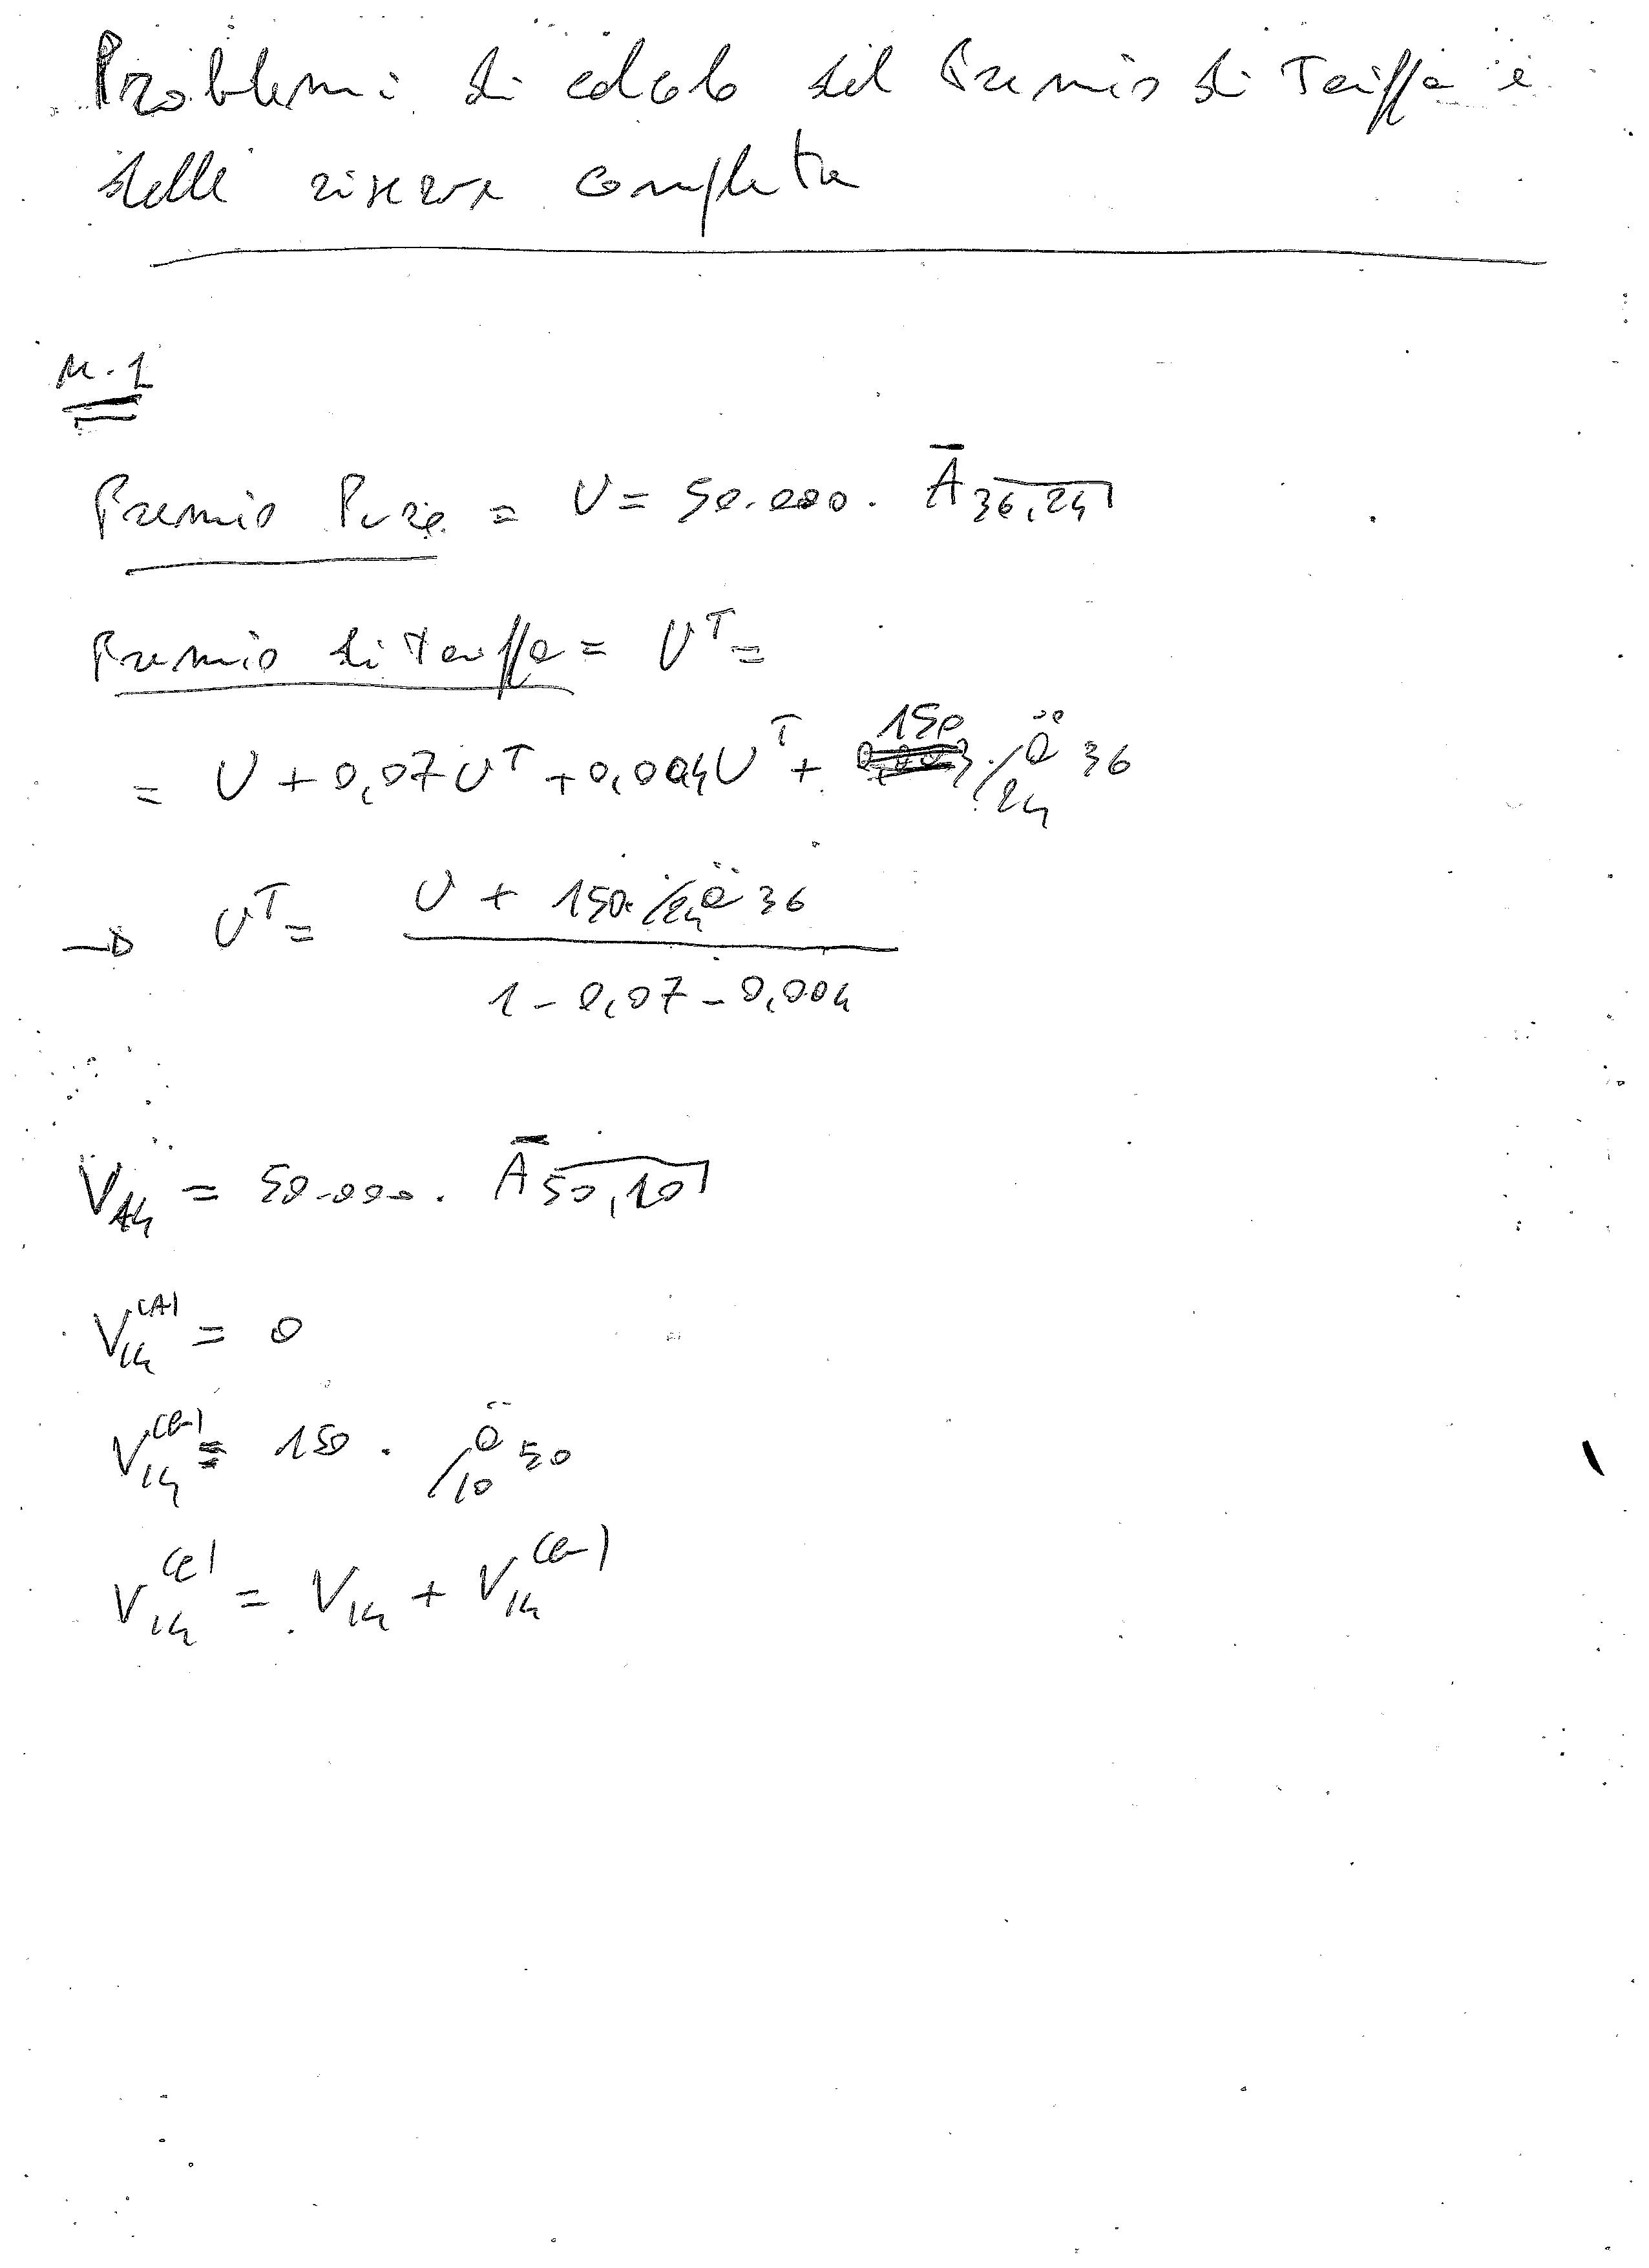 Problemi di calcolo del Premio di Tariffa e
delle riserve complete
N. 1
Premio Puro = U = 50.000 · Ā 36,24⌉
Premio di tariffa = Uᵀ =
= U + 0,07 Uᵀ + 0,004 Uᵀ + 150 · /24 ä 36
→ Uᵀ = (U + 150 · /24 ä 36) / (1 - 0,07 - 0,004)
V₁₄ = 50.000 · Ā 50,10⌉
V₁₄⁽ᴬ⁾ = 0
V₁₄⁽ᴳ⁾ = 150 · /10 ä 50
V₁₄⁽ᶜ⁾ = V₁₄ + V₁₄⁽ᴳ⁾